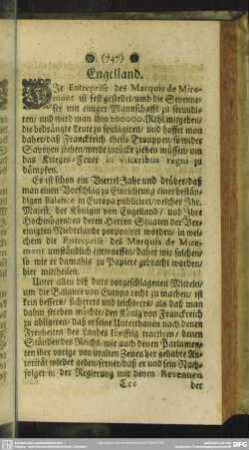 (747)
Engelland.
DIe Entreprise des Marquis de Miremont
ist fest gestellet/und die Sevennoser
mit einiger Mannschafft zu secundiren/
und wird man ihm 100000. Rthl. mitgeben/
die bedrängte Leute zu soulagiren/ und hoffet man
daher/daß Franckreich theils Trouppen/so wider
Savoyen stehen/werde zurück ziehen müssen/um
das Krieges-Feuer in visceribus regni zu
dämpfen.
Es ist schon ein Viertel Jahr und drüber/daß
man einen Vorschlag zu Einrichtung einer beständigen
Balance in Europa publiciret/welcher Ihr.
Majest. der Königin von Engelland/ und Ihr.
Hochmögenden deren Herren Staaten der Vereinigten
Niederlande proponiret worden/ in welchem
die Entreprise des Marquis de Miremont
umständlich entworffen/ daher wir solchen/
so wie er damahls zu Papiere gebracht worden/
hier mittheilen.
Unter allen biß dato vorgeschlagenen Mitteln/
um die Balance von Europa recht zu machen/ ist
kein bessers/ sicherers und leichters/ als daß man
dahin streben möchte/den König von Franckreich
zu obligiren/daß er seine Unterthanen nach denen
Freyheiten des Landes künfftig tractire/ denen
Ständen des Reichs/ wie auch denen Parlamenten
ihre vorige von uralten Zeiten her gehabte Autorität
wieder geben/ferner/daß er und sein Nachfolger
in der Regierung mit denen Revenuen
Ccc
der